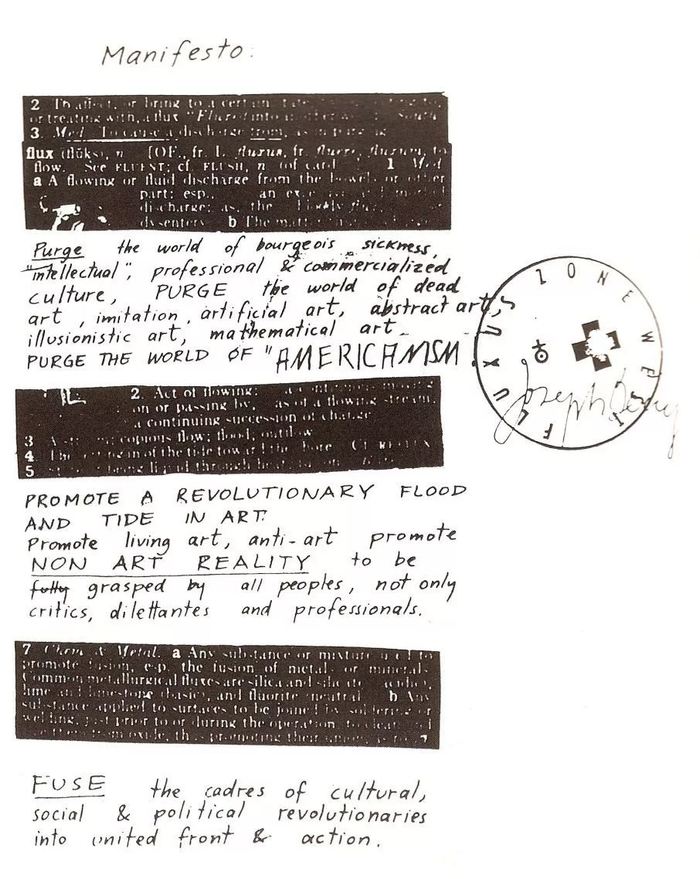 Manifesto:
2. To affect, or bring to a certain
or treating with, a flux "Fluxed into
3. Med. To cause a discharge from, as in
flux (flŭks), n. [OF., fr. L. fluxus, fr. fluere, fluxum, to
flow. See FLUENT; cf. FLUSH, n. (of cards 1 Med.
a A flowing or fluid discharge from the bowels or other
part; esp., an
discharge; as, the
dysentery. b The
Purge the world of bourgeois sickness,
"intellectual", professional & commercialized
culture, PURGE the world of dead
art, imitation, artificial art, abstract art,
illusionistic art, mathematical art,
PURGE THE WORLD OF "AMERICANISM
FLUXUS ZONE WEST
Joseph Beuys
2. Act of flowing: a continuous moving
on or passing by, as of a flowing stream
a continuing succession of change
3 A copious flow; flood; outflow
4 The in of the tide toward the shore. Cf. REFLUX
5 being liquid through heat
PROMOTE A REVOLUTIONARY FLOOD
AND TIDE IN ART.
Promote living art, anti-art promote
NON ART REALITY to be
fully grasped by all peoples, not only
critics, dilettantes and professionals.
7 Chem. & Metal. a Any substance or mixture used to
promote fusion, esp. the fusion of metals or minerals.
Common metallurgical fluxes are silica and silicates (acidic
lime and limestone (basic), and fluorite (neutral b Any
substance applied to surfaces to be joined by soldering or
welding, just prior to or during the operation, to clean
from oxide, thus promoting their union, as
FUSE the cadres of cultural,
social & political revolutionaries
into united front & action.